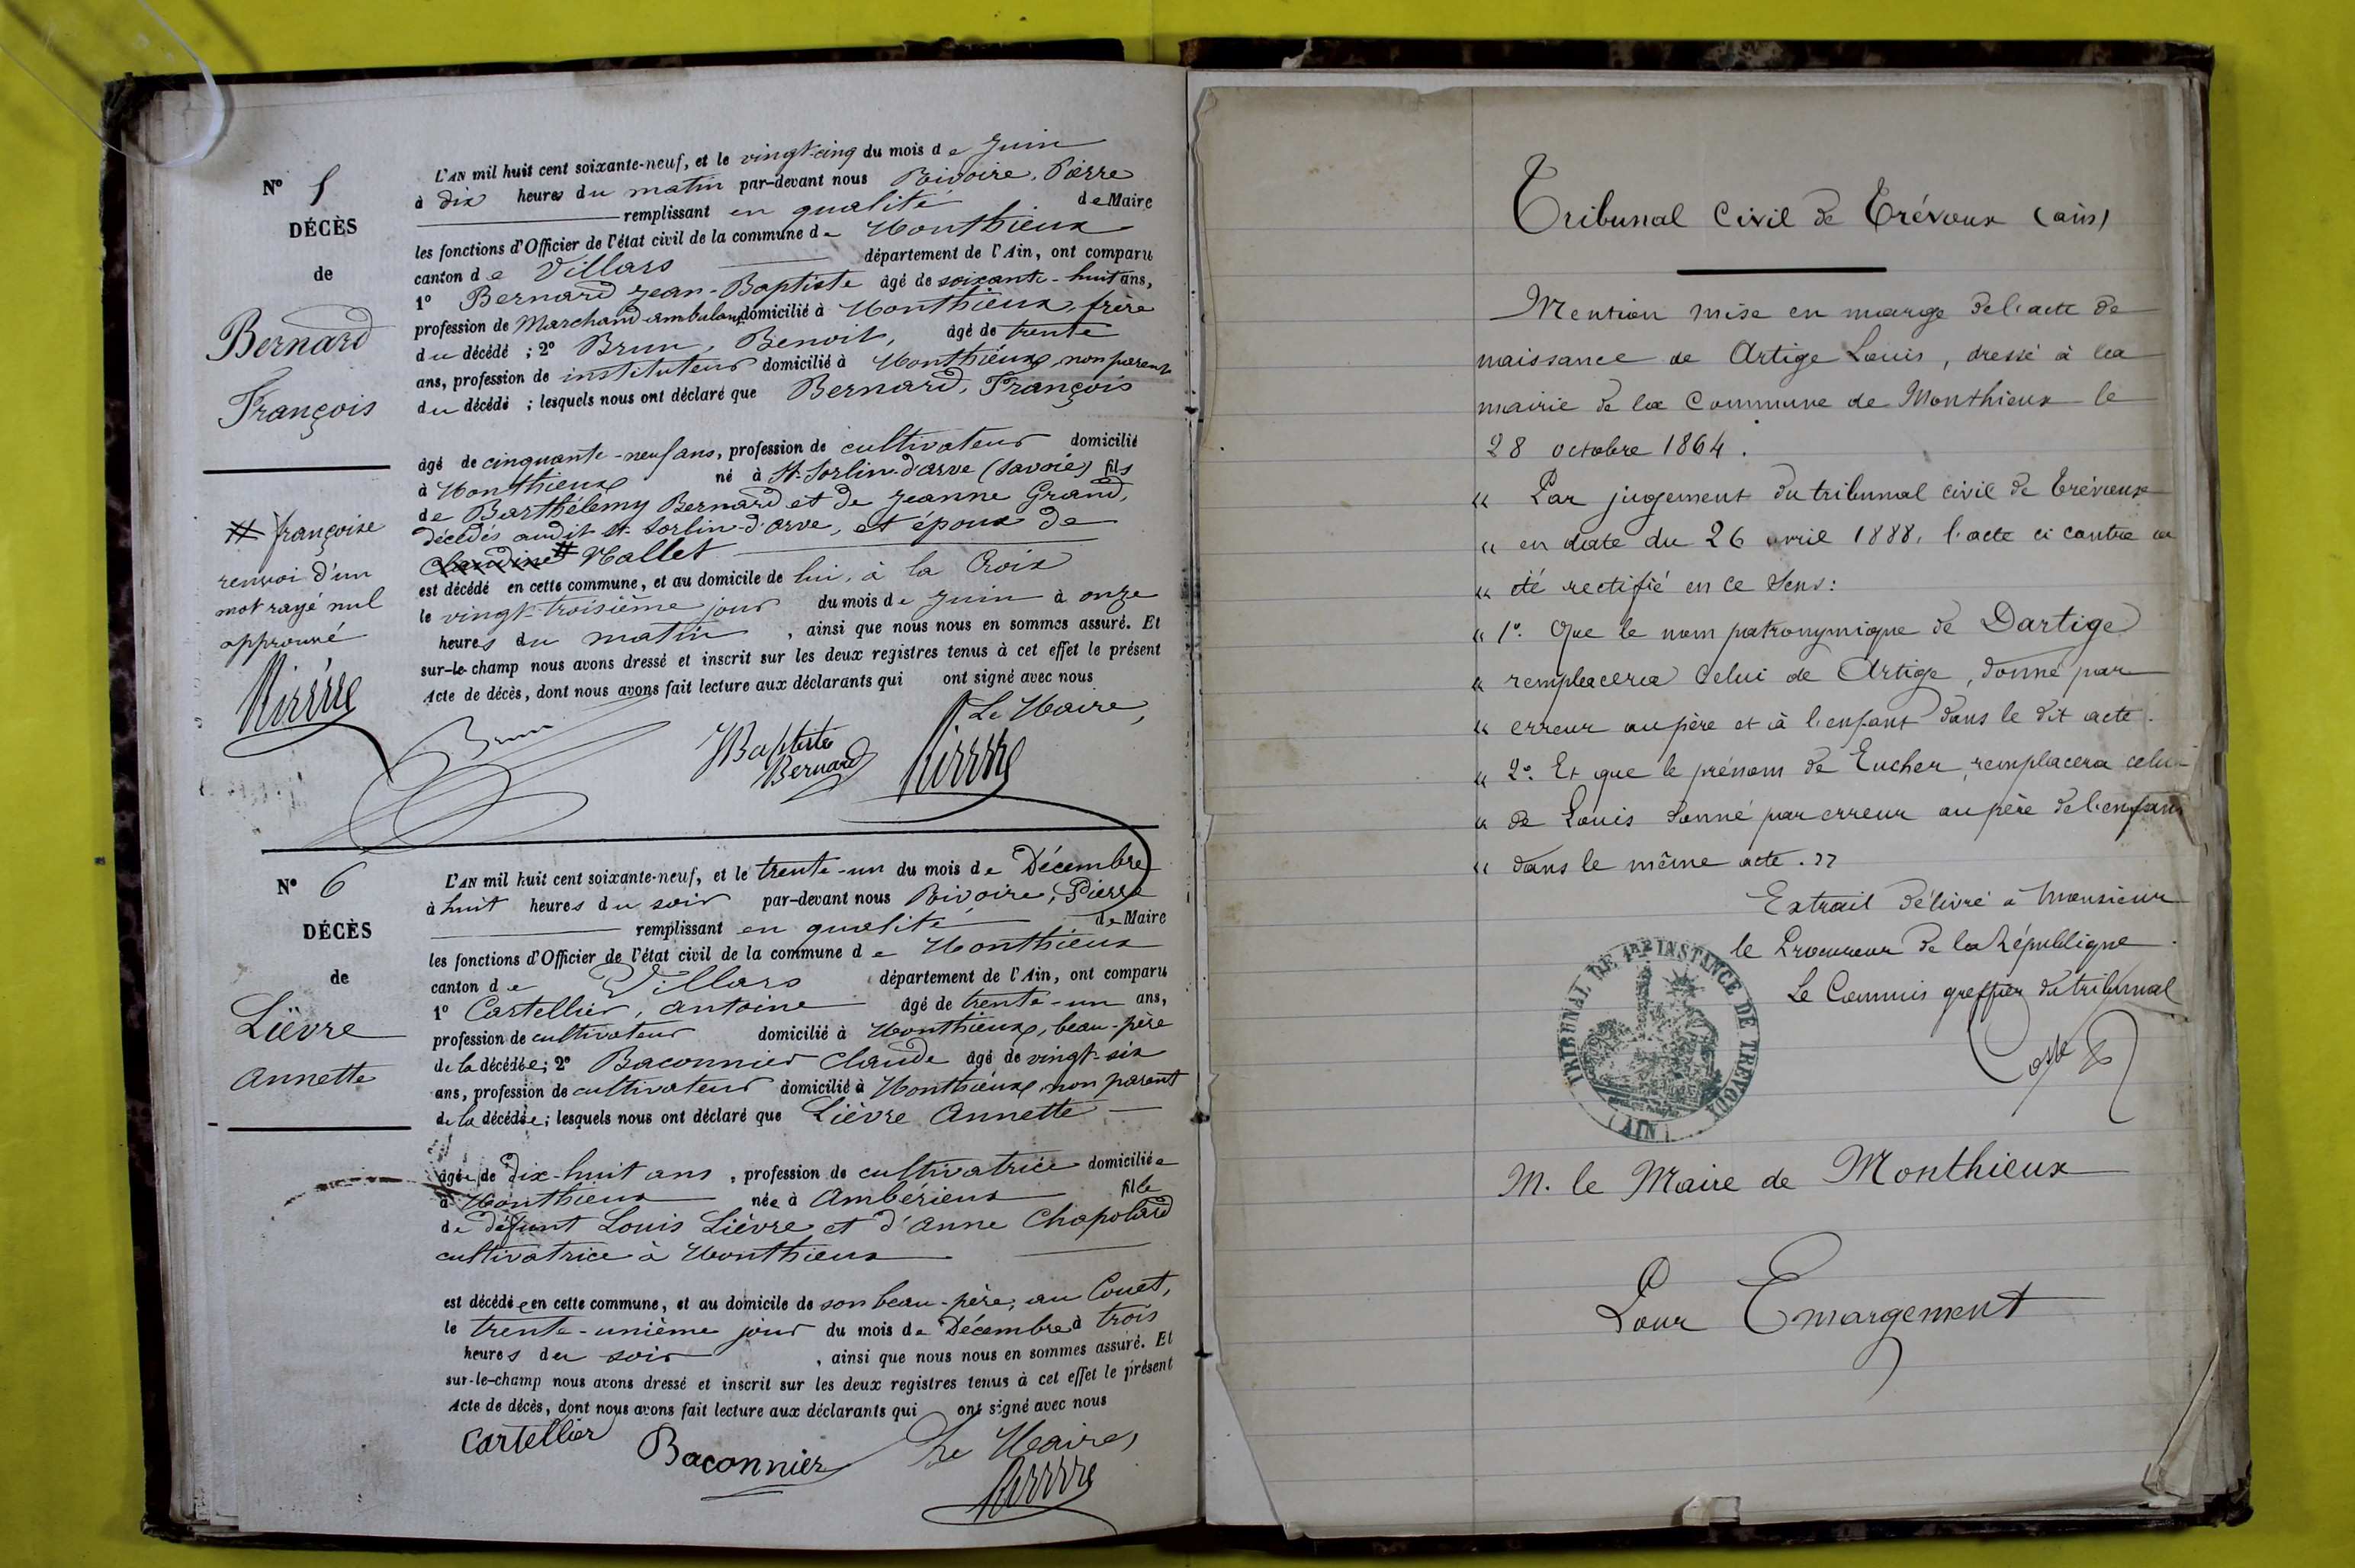 N° 5
DÉCÈS
de
Bernard
François
# françoise
renvoi d'un
mot rayé nul
approuvé
L'AN mil huit cent soixante-neuf, et le vingt-cinq du mois de Juin
à dix heures du matin par-devant nous Rivoire, Pierre
remplissant en qualité de Maire
les fonctions d'Officier de l'état civil de la commune de Monthieux
canton de Villars département de l'Ain, ont comparu
1° Bernard Jean-Baptiste âgé de soixante-huit ans,
profession de Marchand ambulant domicilié à Monthieux, frère
du décédé ; 2° Brun, Benoit, âgé de trente
ans, profession de instituteur domicilié à Monthieux, non parent
du décédé ; lesquels nous ont déclaré que Bernard, François
âgé de cinquante-neuf ans, profession de cultivateur domicilié
à Monthieux né à St-Sorlin-d'arve (Savoie) fils
de Barthélemy Bernard et de Jeanne Grand,
décédés audit St-Sorlin-d'arve, et époux de
Claudine # Mallet
est décédé en cette commune, et au domicile de lui, à la Croix
le vingt-troisième jour du mois de Juin à onze
heures du matin, ainsi que nous nous en sommes assuré. Et
sur-le-champ nous avons dressé et inscrit sur les deux registres tenus à cet effet le présent
Acte de décès, dont nous avons fait lecture aux déclarants qui ont signé avec nous
Le Maire,
Brun
JBaptiste
Bernard
Rivoire
N° 6
DÉCÈS
de
Lièvre
Annette
L'AN mil huit cent soixante-neuf, et le trente-un du mois de Décembre
à huit heures du soir par-devant nous Rivoire, Pierre
remplissant en qualité de Maire
les fonctions d'Officier de l'état civil de la commune de Monthieux
canton de Villars département de l'Ain, ont comparu
1° Cartellier, Antoine âgé de trente-un ans,
profession de cultivateur domicilié à Monthieux, beau-père
de la décédée; 2° Baconnier Claude âgé de vingt-six
ans, profession de cultivateur domicilié à Monthieux, non parent
de la décédée; lesquels nous ont déclaré que Lièvre Annette
âgée de dix-huit ans, profession de cultivatrice domiciliée
à Monthieux née à Ambérieux fille
de défunt Louis Lièvre et d'Anne Chapolard
cultivatrice à Monthieux
est décédée en cette commune, et au domicile de son beau-père, au Couet,
le trente-unième jour du mois de Décembre à trois
heures du soir, ainsi que nous nous en sommes assuré. Et
sur-le-champ nous avons dressé et inscrit sur les deux registres tenus à cet effet le présent
Acte de décès, dont nous avons fait lecture aux déclarants qui ont signé avec nous
Cartellier
Baconnier
Le Maire,
Rivoire
Tribunal Civil de Trévoux (ain)
Mention mise en marge de l'acte de
naissance de Artige Louis, dressé à la
mairie de la Commune de Monthieux le
28 octobre 1864.
« Par jugement du tribunal civil de Trévoux
« en date du 26 avril 1888, l'acte ci contre a
« été rectifié en ce sens:
« 1°. Que le nom patronymique de Dartige
« remplacera celui de Artige, donné par
« erreur au père et à l'enfant dans le dit acte.
« 2°. Et que le prénom de Eucher, remplacera celui
« de Louis donné par erreur au père de l'enfant
« dans le même acte. »
Extrait délivré à Monsieur
le Procureur de la République.
Le Commis greffier du tribunal
TRIBUNAL DE 1RE INSTANCE DE TREVOUX
(AIN)
M. le Maire de Monthieux
Pour Emargement